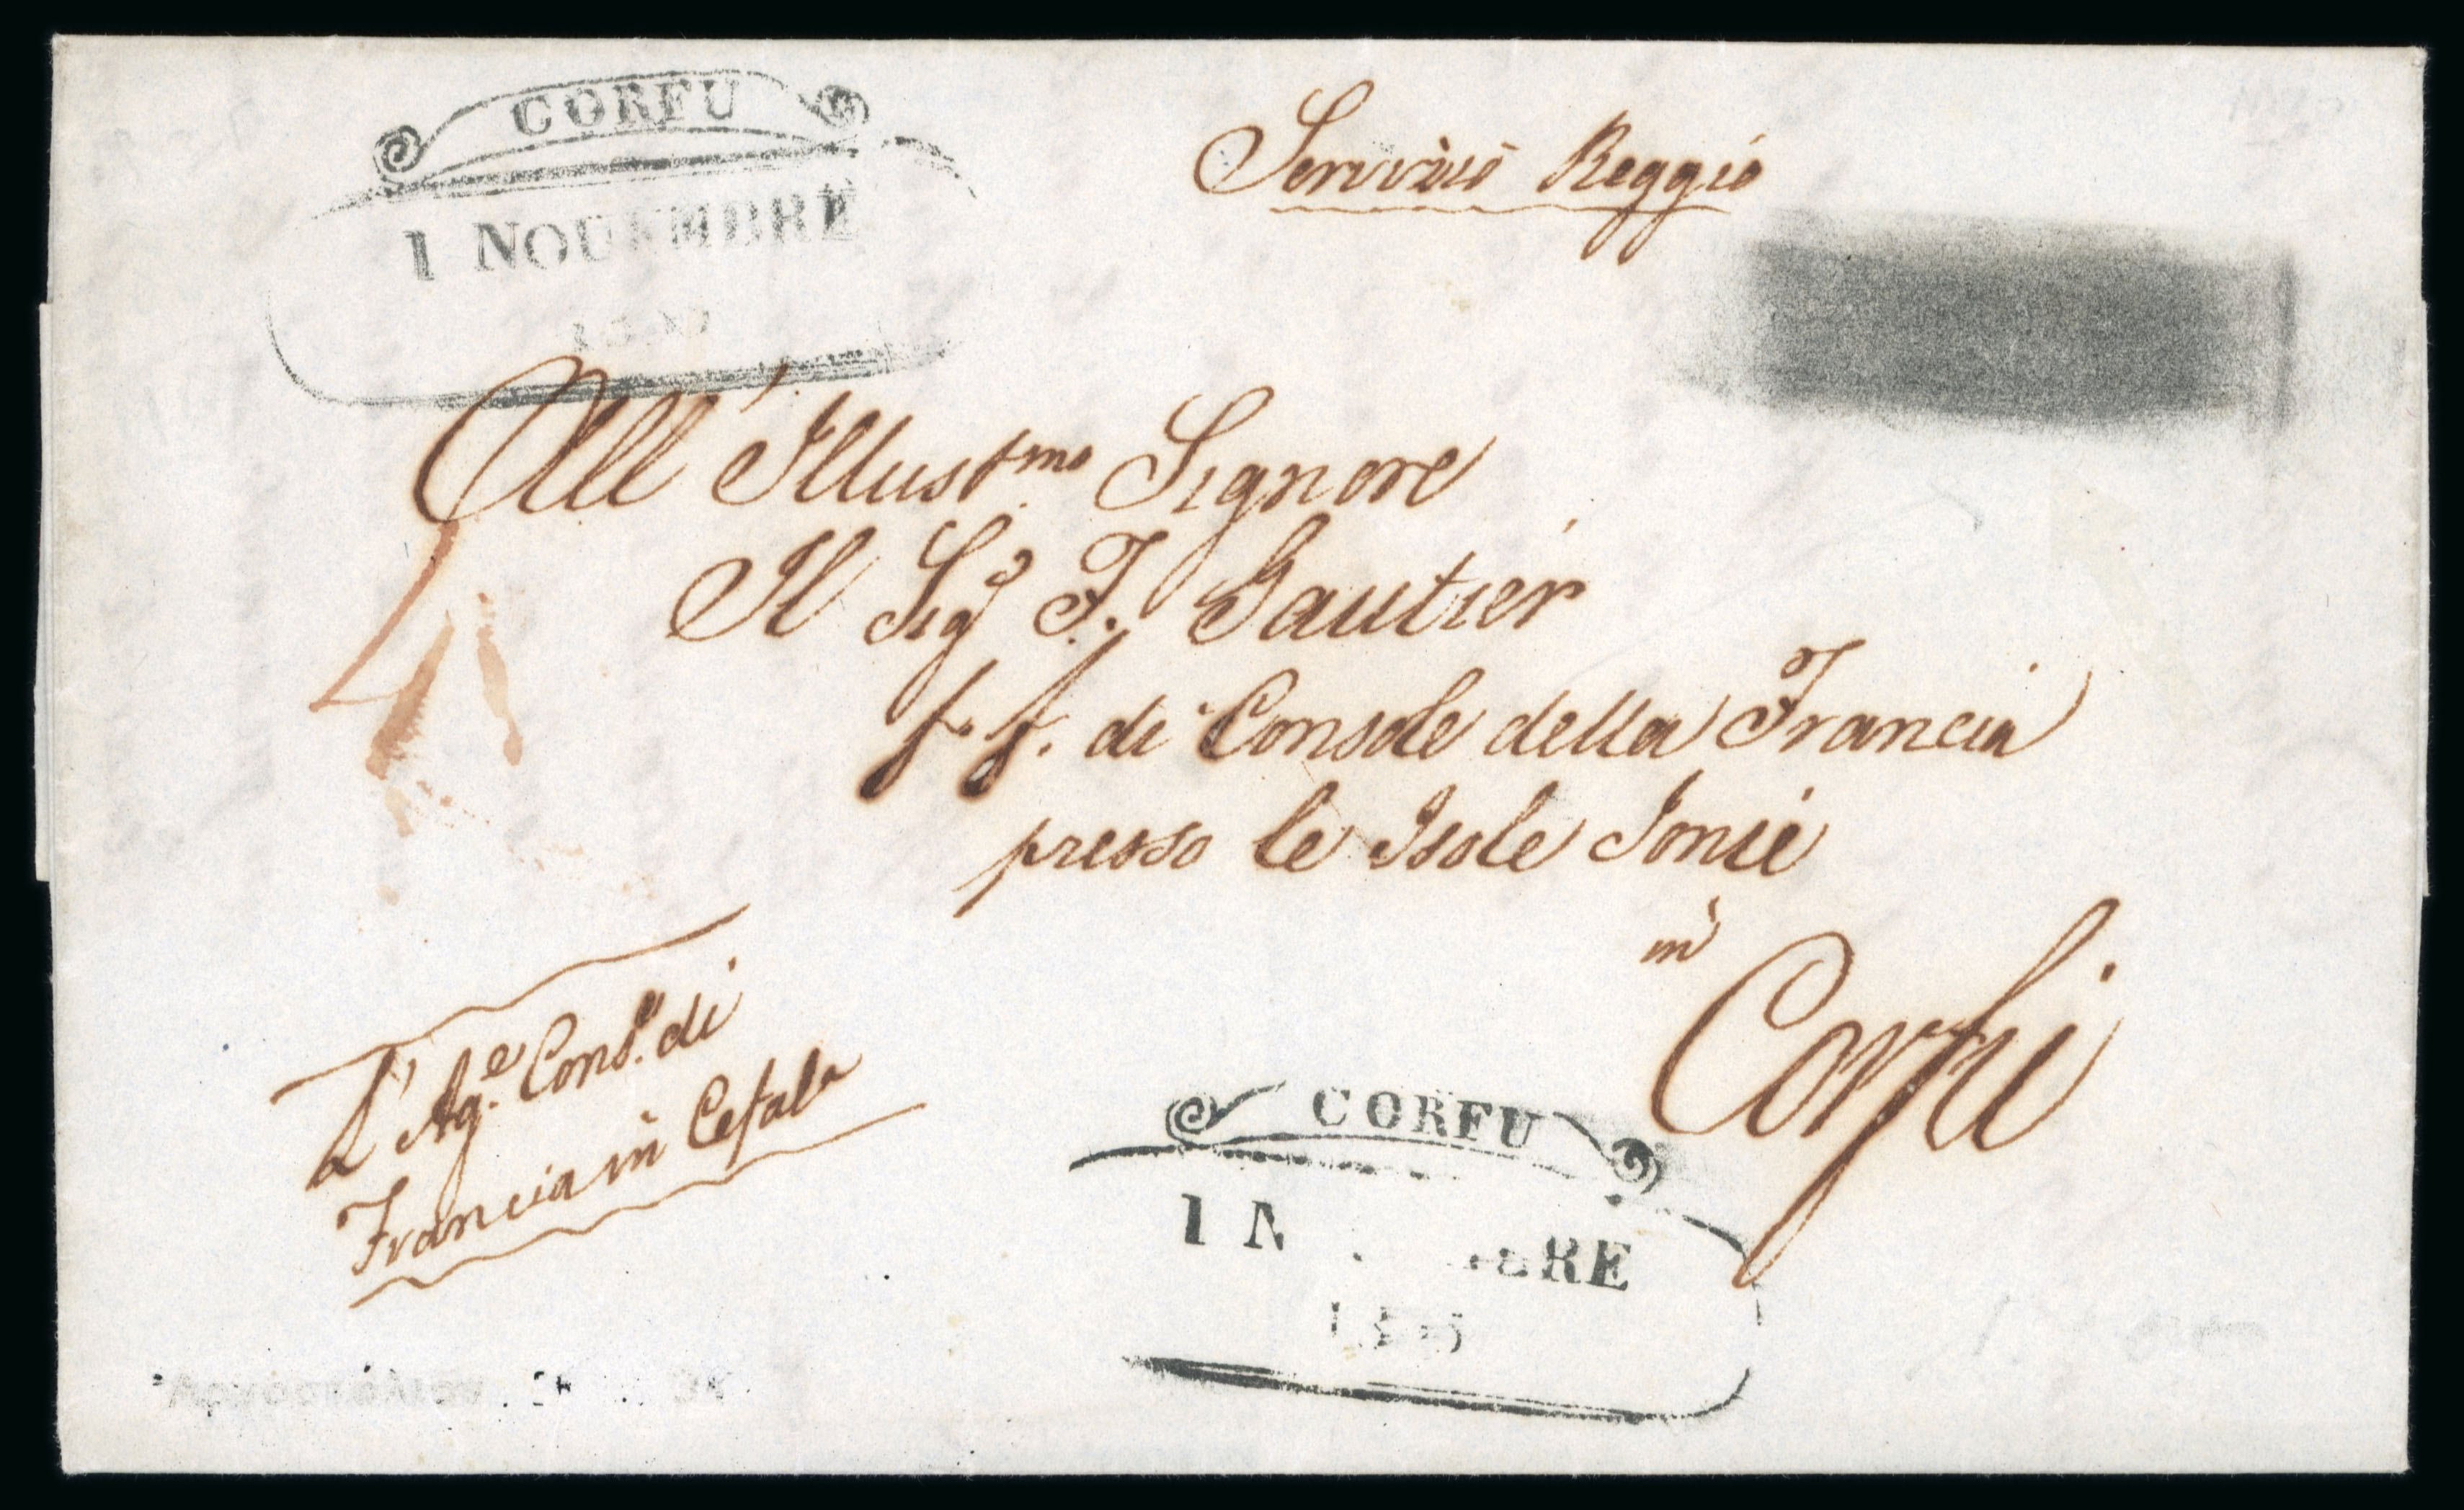 CORFU
1 NOUEMBRE
Servizio Reggio
All' Illustmo Signore
Il Sigr F. Gautier
f. f. di Console della Francia
presso le Isole Jonie
in
Corfu
4
L' Age. Cons. di
Francia in Cefala
CORFU
1 N BRE